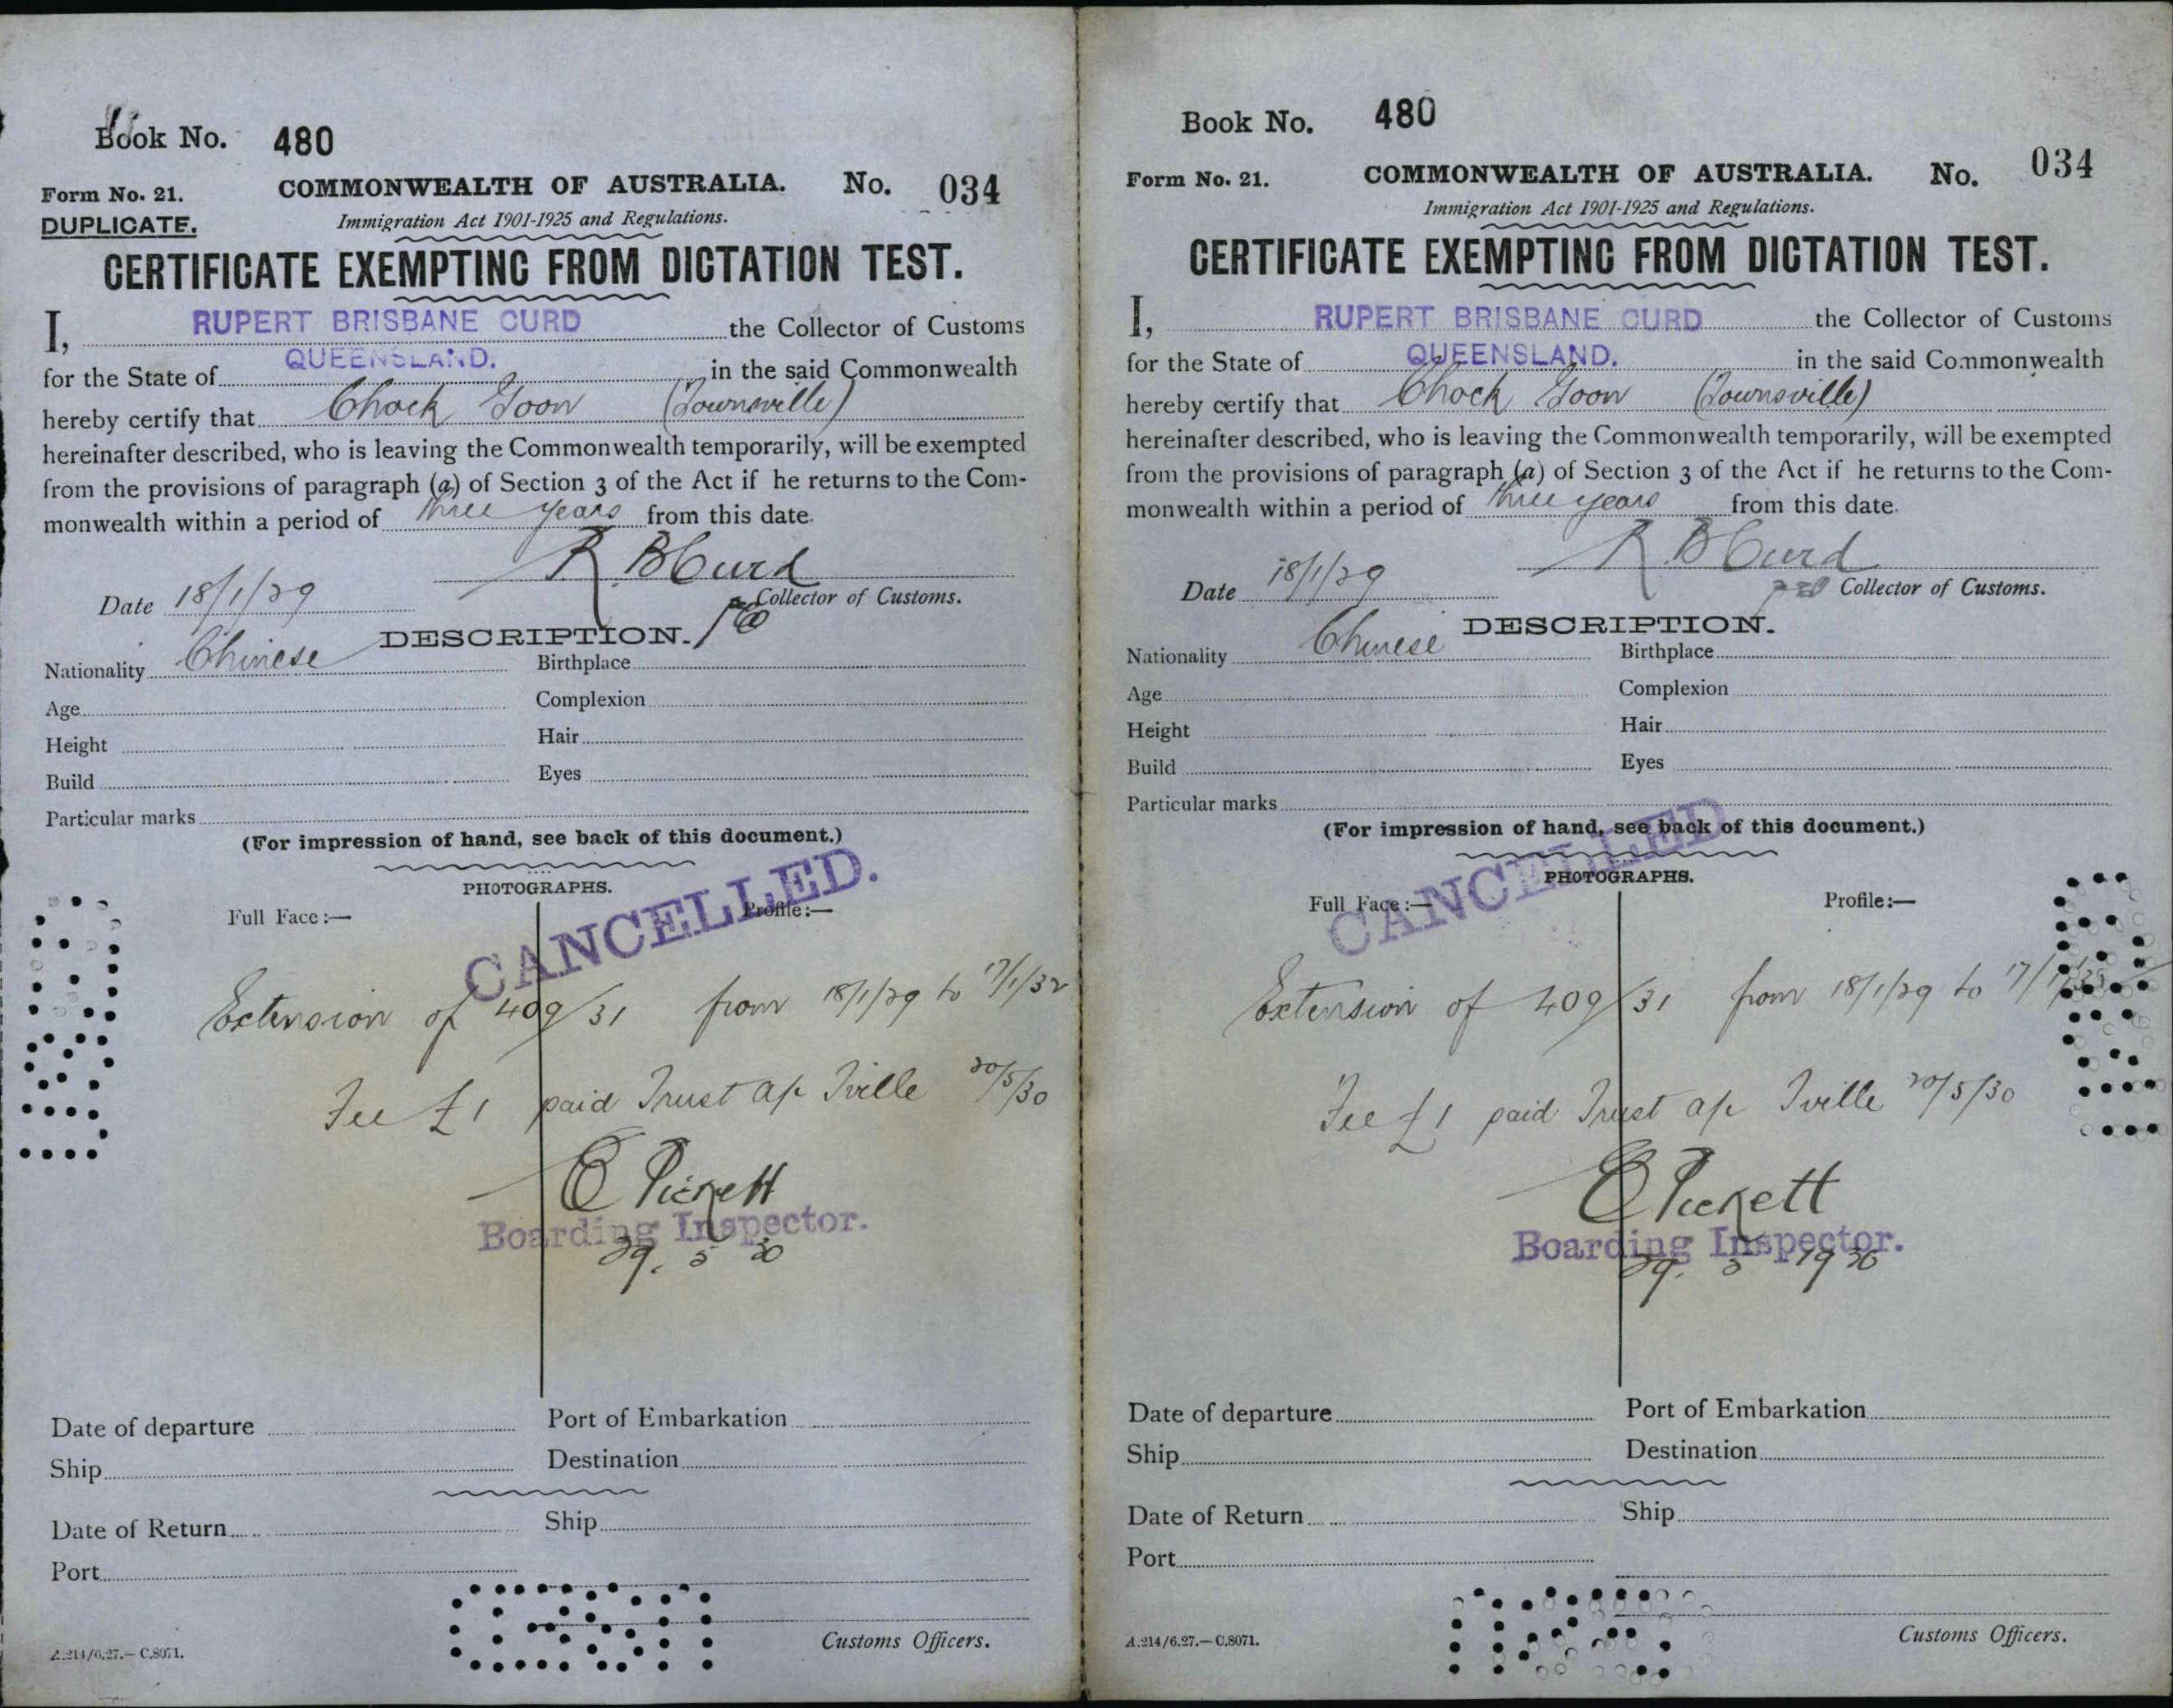 Book No. 480
Form No. 21. COMMONWEALTH OF AUSTRALIA. No. 034
DUPLICATE. Immigration Act 1901-1925 and Regulations.
CERTIFICATE EXEMPTING FROM DICTATION TEST.
I, RUPERT BRISBANE CURD the Collector of Customs
for the State of QUEENSLAND. in the said Commonwealth
hereby certify that Chock Goon (Townsville)
hereinafter described, who is leaving the Commonwealth temporarily, will be exempted
from the provisions of paragraph (a) of Section 3 of the Act if he returns to the Com-
monwealth within a period of three years from this date.
R. B Curd
Date 18/1/29 Collector of Customs.
DESCRIPTION.
Nationality Chinese Birthplace
Age Complexion
Height Hair
Build Eyes
Particular marks
(For impression of hand, see back of this document.)
PHOTOGRAPHS.
CANCELLED.
Full Face:— Profile:—
Extension of 409/31 from 18/1/29 to 17/1/32
Fee £1 paid Trust a/c Tville 20/5/30
E Pickett
Boarding Inspector.
29. 5 30
Date of departure Port of Embarkation
Ship Destination
Date of Return Ship
Port
A.214/6.27.—C.8071. Customs Officers.
Book No. 480
Form No. 21. COMMONWEALTH OF AUSTRALIA. No. 034
Immigration Act 1901-1925 and Regulations.
CERTIFICATE EXEMPTING FROM DICTATION TEST.
I, RUPERT BRISBANE CURD the Collector of Customs
for the State of QUEENSLAND. in the said Commonwealth
hereby certify that Chock Goon (Townsville)
hereinafter described, who is leaving the Commonwealth temporarily, will be exempted
from the provisions of paragraph (a) of Section 3 of the Act if he returns to the Com-
monwealth within a period of three years from this date.
R. B Curd
Date 18/1/29 Collector of Customs.
DESCRIPTION.
Nationality Chinese Birthplace
Age Complexion
Height Hair
Build Eyes
Particular marks
(For impression of hand, see back of this document.)
CANCELLED
PHOTOGRAPHS.
Full Face:— Profile:—
Extension of 409/31 from 18/1/29 to
Fee £1 paid Trust a/c Tville 20/5/30
E Pickett
Boarding Inspector.
29. 5 1930
Date of departure Port of Embarkation
Ship Destination
Date of Return Ship
Port
A.214/6.27.—C.8071. Customs Officers.